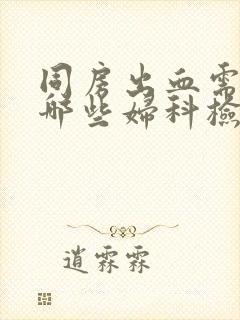 同房出血需
哪些妇科检
逍霖霖